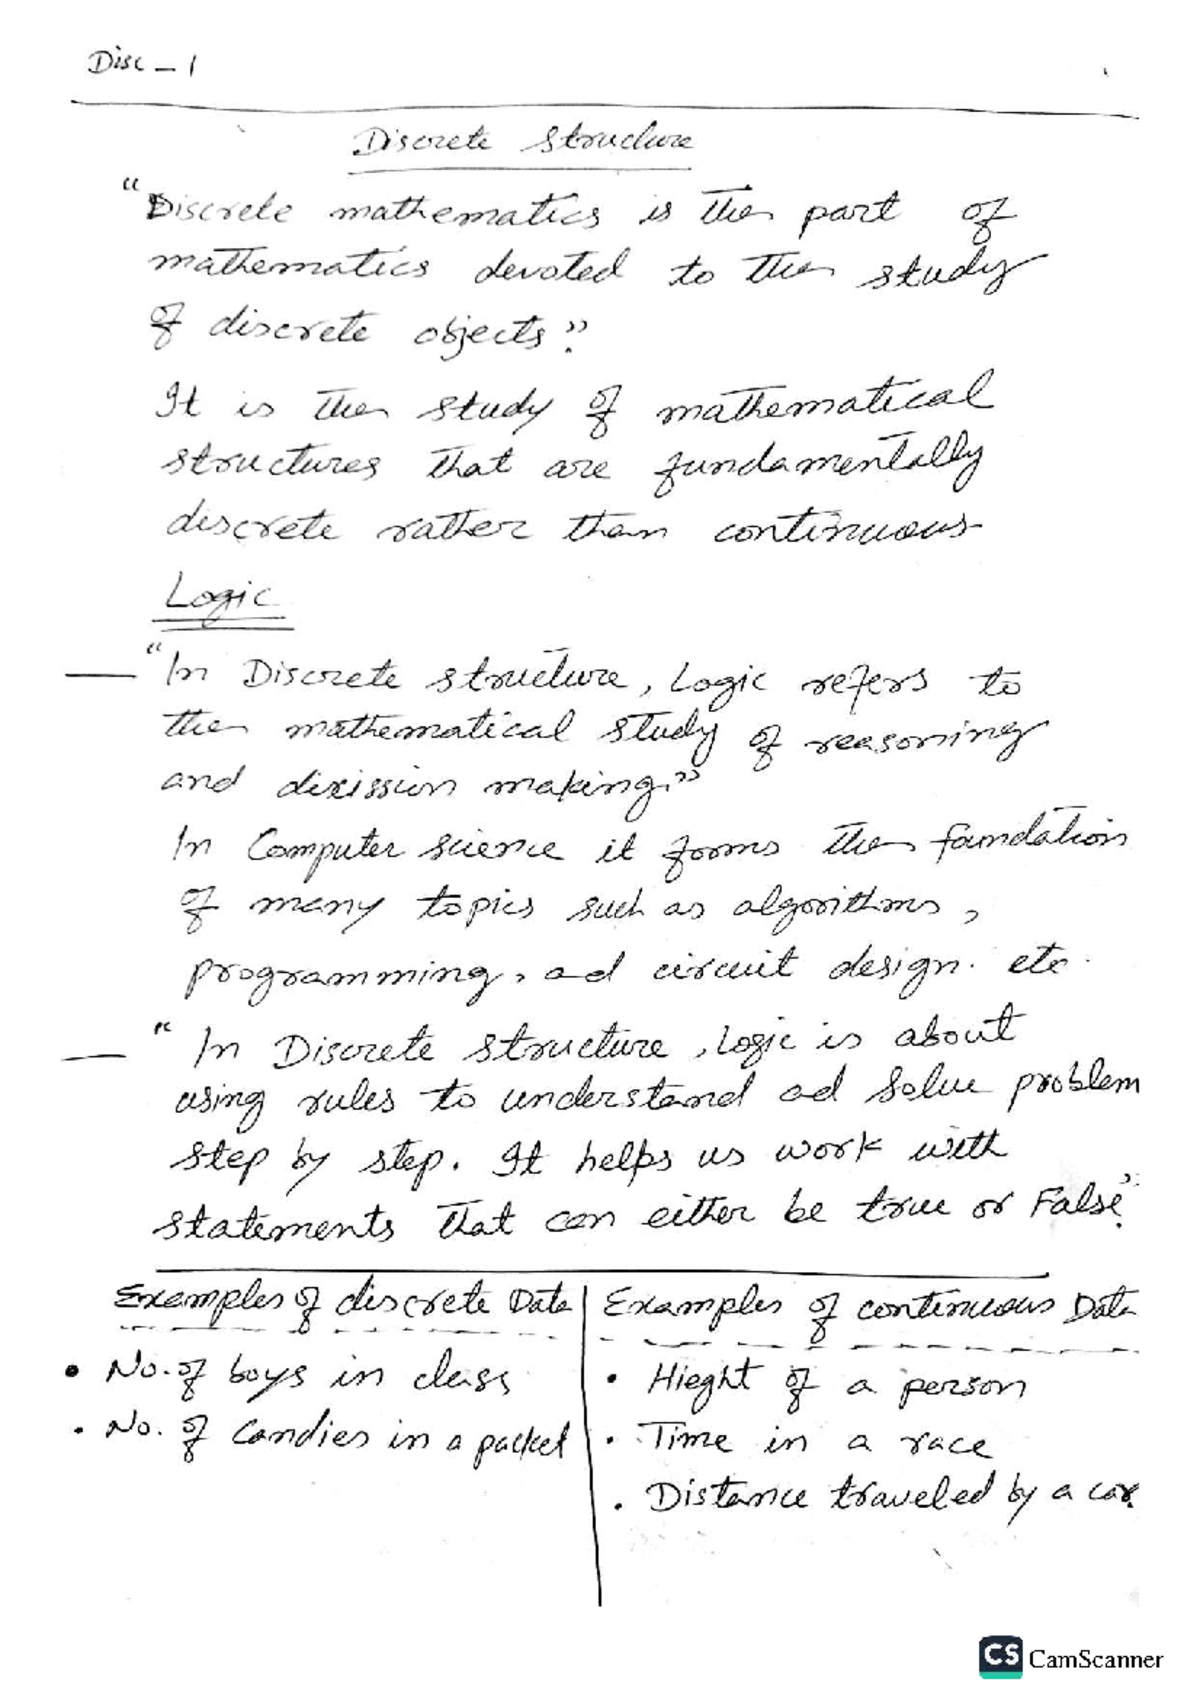 Disc - 1
Discrete Structure
"Discrete mathematics is the part of
mathematics devoted to the study
of discrete objects".
It is the study of mathematical
structures that are fundamentally
discrete rather than continuous
Logic
— "In Discrete structure, Logic refers to
the mathematical study of reasoning
and dixission making."
In Computer science it forms the foundation
of many topics such as algorithms,
programming, ad circuit design. etc.
— "In Discrete structure, Logic is about
using rules to understand ad solve problem
step by step. It helps us work with
statements that can either be true or False".
Examples of discrete Data | Examples of continuous Data
• No. of boys in class • Hieght of a person
• No. of Candies in a packet • Time in a race
• Distance traveled by a car.
CS CamScanner